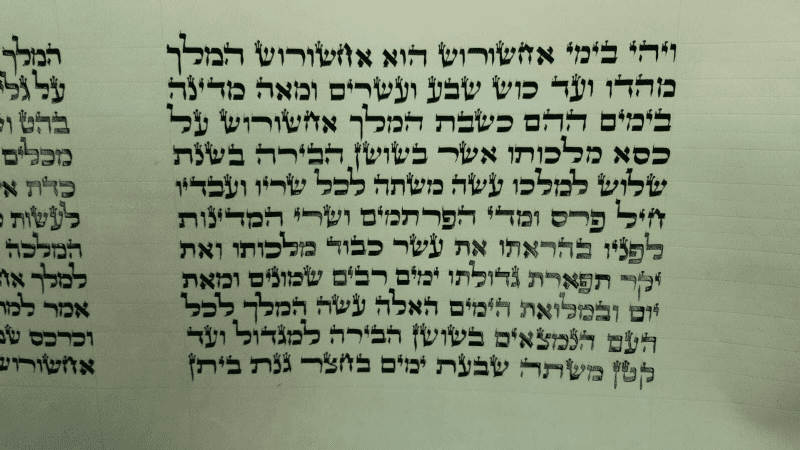 ויהי בימי אחשורוש הוא אחשורוש המלך
מהדו ועד כוש שבע ועשרים ומאה מדינה
בימים ההם כשבת המלך אחשורוש על
כסא מלכותו אשר בשושן הבירה בשנת
שלוש למלכו עשה משתה לכל שריו ועבדיו
חיל פרס ומדי הפרתמים ושרי המדינות
לפניו בהראתו את עשר כבוד מלכותו ואת
יקר תפארת גדולתו ימים רבים שמונים ומאת
יום ובמלואת הימים האלה עשה המלך לכל
העם הנמצאים בשושן הבירה למגדול ועד
קטן משתה שבעת ימים בחצר גנת ביתן
המלך
על
בהט
מכלים
כדת
לעשות
המלכה
למלך
אמר
וכרכס
אחשורוש